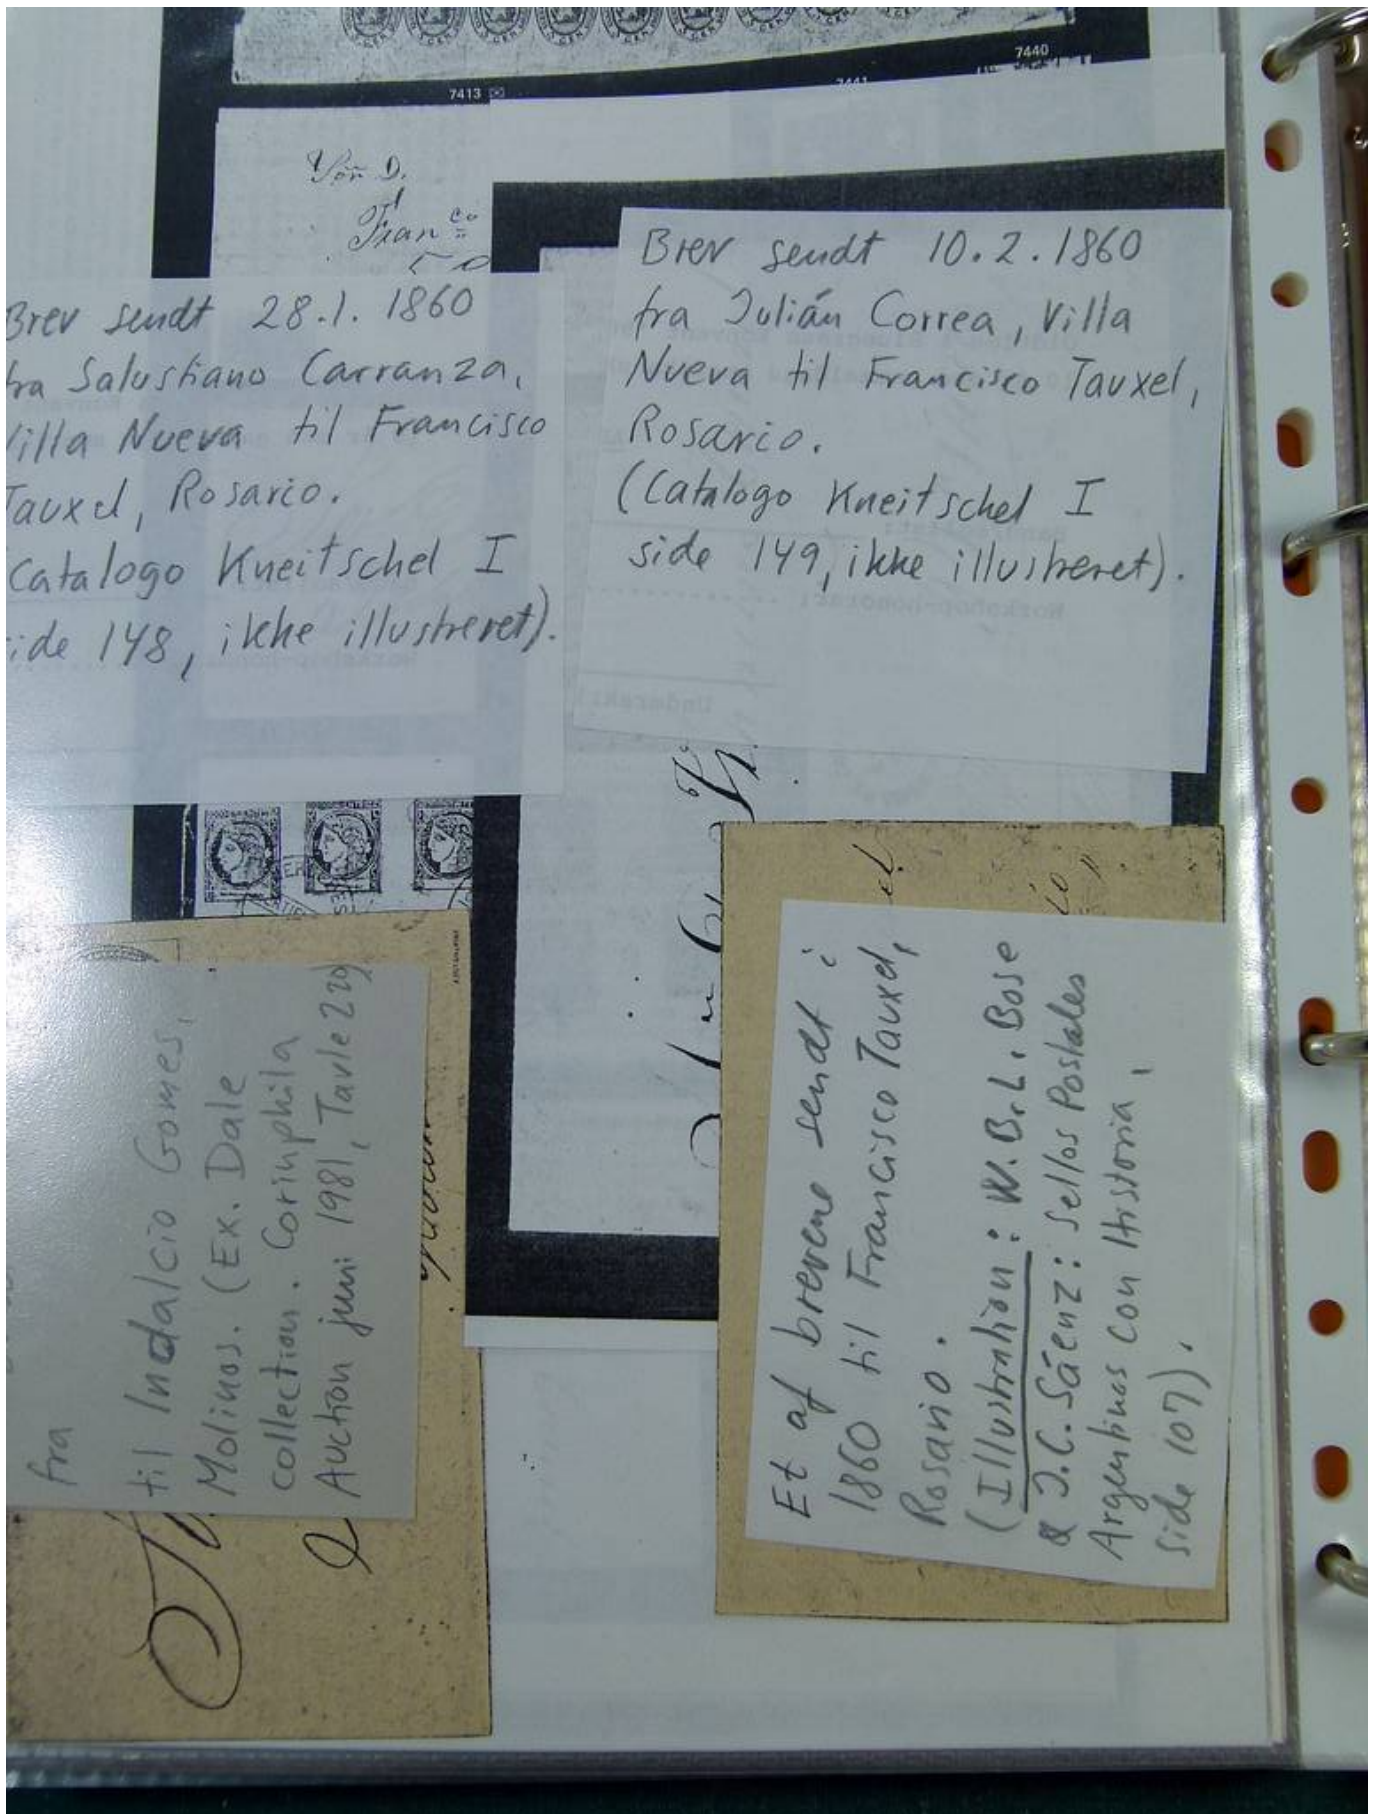 5 CEN
7413
7441
7440
Fran co
Brev sendt 28.1. 1860
fra Salustiano Carranza,
Villa Nueva til Francisco
Tauxel, Rosario.
Catalogo Kneitschel I
side 148, ikke illustreret).
Brev sendt 10.2.1860
fra Julián Correa, Villa
Nueva til Francisco Tauxel,
Rosario.
(Catalogo Kneitschel I
side 149, ikke illustreret).
Workshop-honorar:
fra
til Indalcio Gomes,
Molinos. (Ex. Dale
collection. Corinphila
Auction juni 1981, Tavle 220)
Et af brevene sendt i
1860 til Francisco Tauxel,
Rosario.
(Illustration: W.B.L. Bose
& J.C. Sáenz: Sellos Postales
Argentinos con Historia,
side 107).